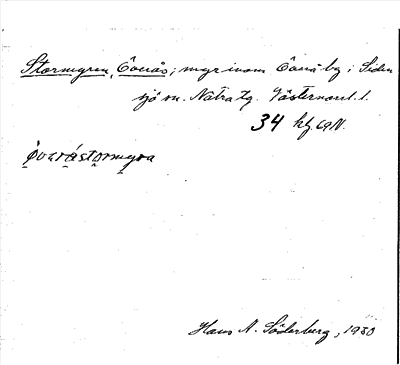 Stormyren, Överås; myr inom Överå by i Siden
sjö sn. Nätra tg. Västernorrl. l.
34 kf. GN.
övəråstormyra
Hans A. Söderberg, 1930